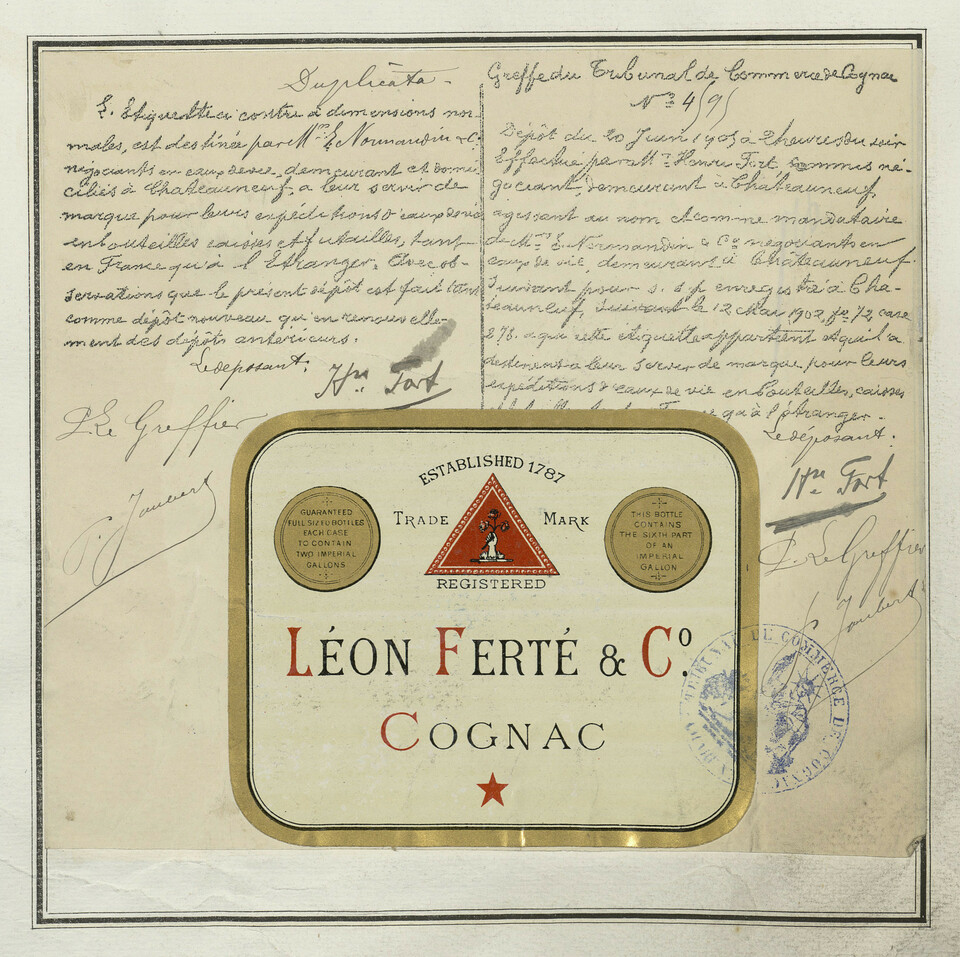 Duplicata
L'Etiquette ci contre à dimensions nor-
males, est destinée par Mrs E. Normandin & Co
négociants en eaux de vie, demeurant et domi-
ciliés à Chateauneuf, a leur servir de
marque pour leurs expéditions d'eaux de vie
en bouteilles caisses et futailles, tant
en France qu'à l'Etranger. Avec ob-
servations que le présent dépôt est fait tant
comme dépôt nouveau qu'en renouvelle-
ment des dépôts antérieurs.
Le déposant.
Hri Fort
P. Le Greffier
Joubert
Greffe du Tribunal de Commerce de Cognac
No 4595
Dépôt du 20 Juin 1905 à 2 heures du soir
Effectué par Mr Henri Fort, commis né-
gociant, demeurant à Châteauneuf,
agissant au nom et comme mandataire
de Mrs E. Normandin & Co négociants en
eaux de vie, demeurant à Châteauneuf.
Suivant pouvr s. s. p. enregistré à Cha-
teauneuf, suivant le 12 Mai 1902, fo 72 case
278. a qui cette étiquette appartient et qu'il a
destinent a leur servir de marque pour leurs
expéditions d'eaux de vie en bouteilles, caisses
France qu'à l'étranger.
Le déposant.
Hri Fort
P. Le Greffier
Joubert
ESTABLISHED 1787
TRADE MARK
REGISTERED
GUARANTEED
FULL SIZED BOTTLES
EACH CASE
TO CONTAIN
TWO IMPERIAL
GALLONS
THIS BOTTLE
CONTAINS
THE SIXTH PART
OF AN
IMPERIAL
GALLON
LÉON FERTÉ & Co.
COGNAC
TRIBUNAL DE COMMERCE DE COGNAC